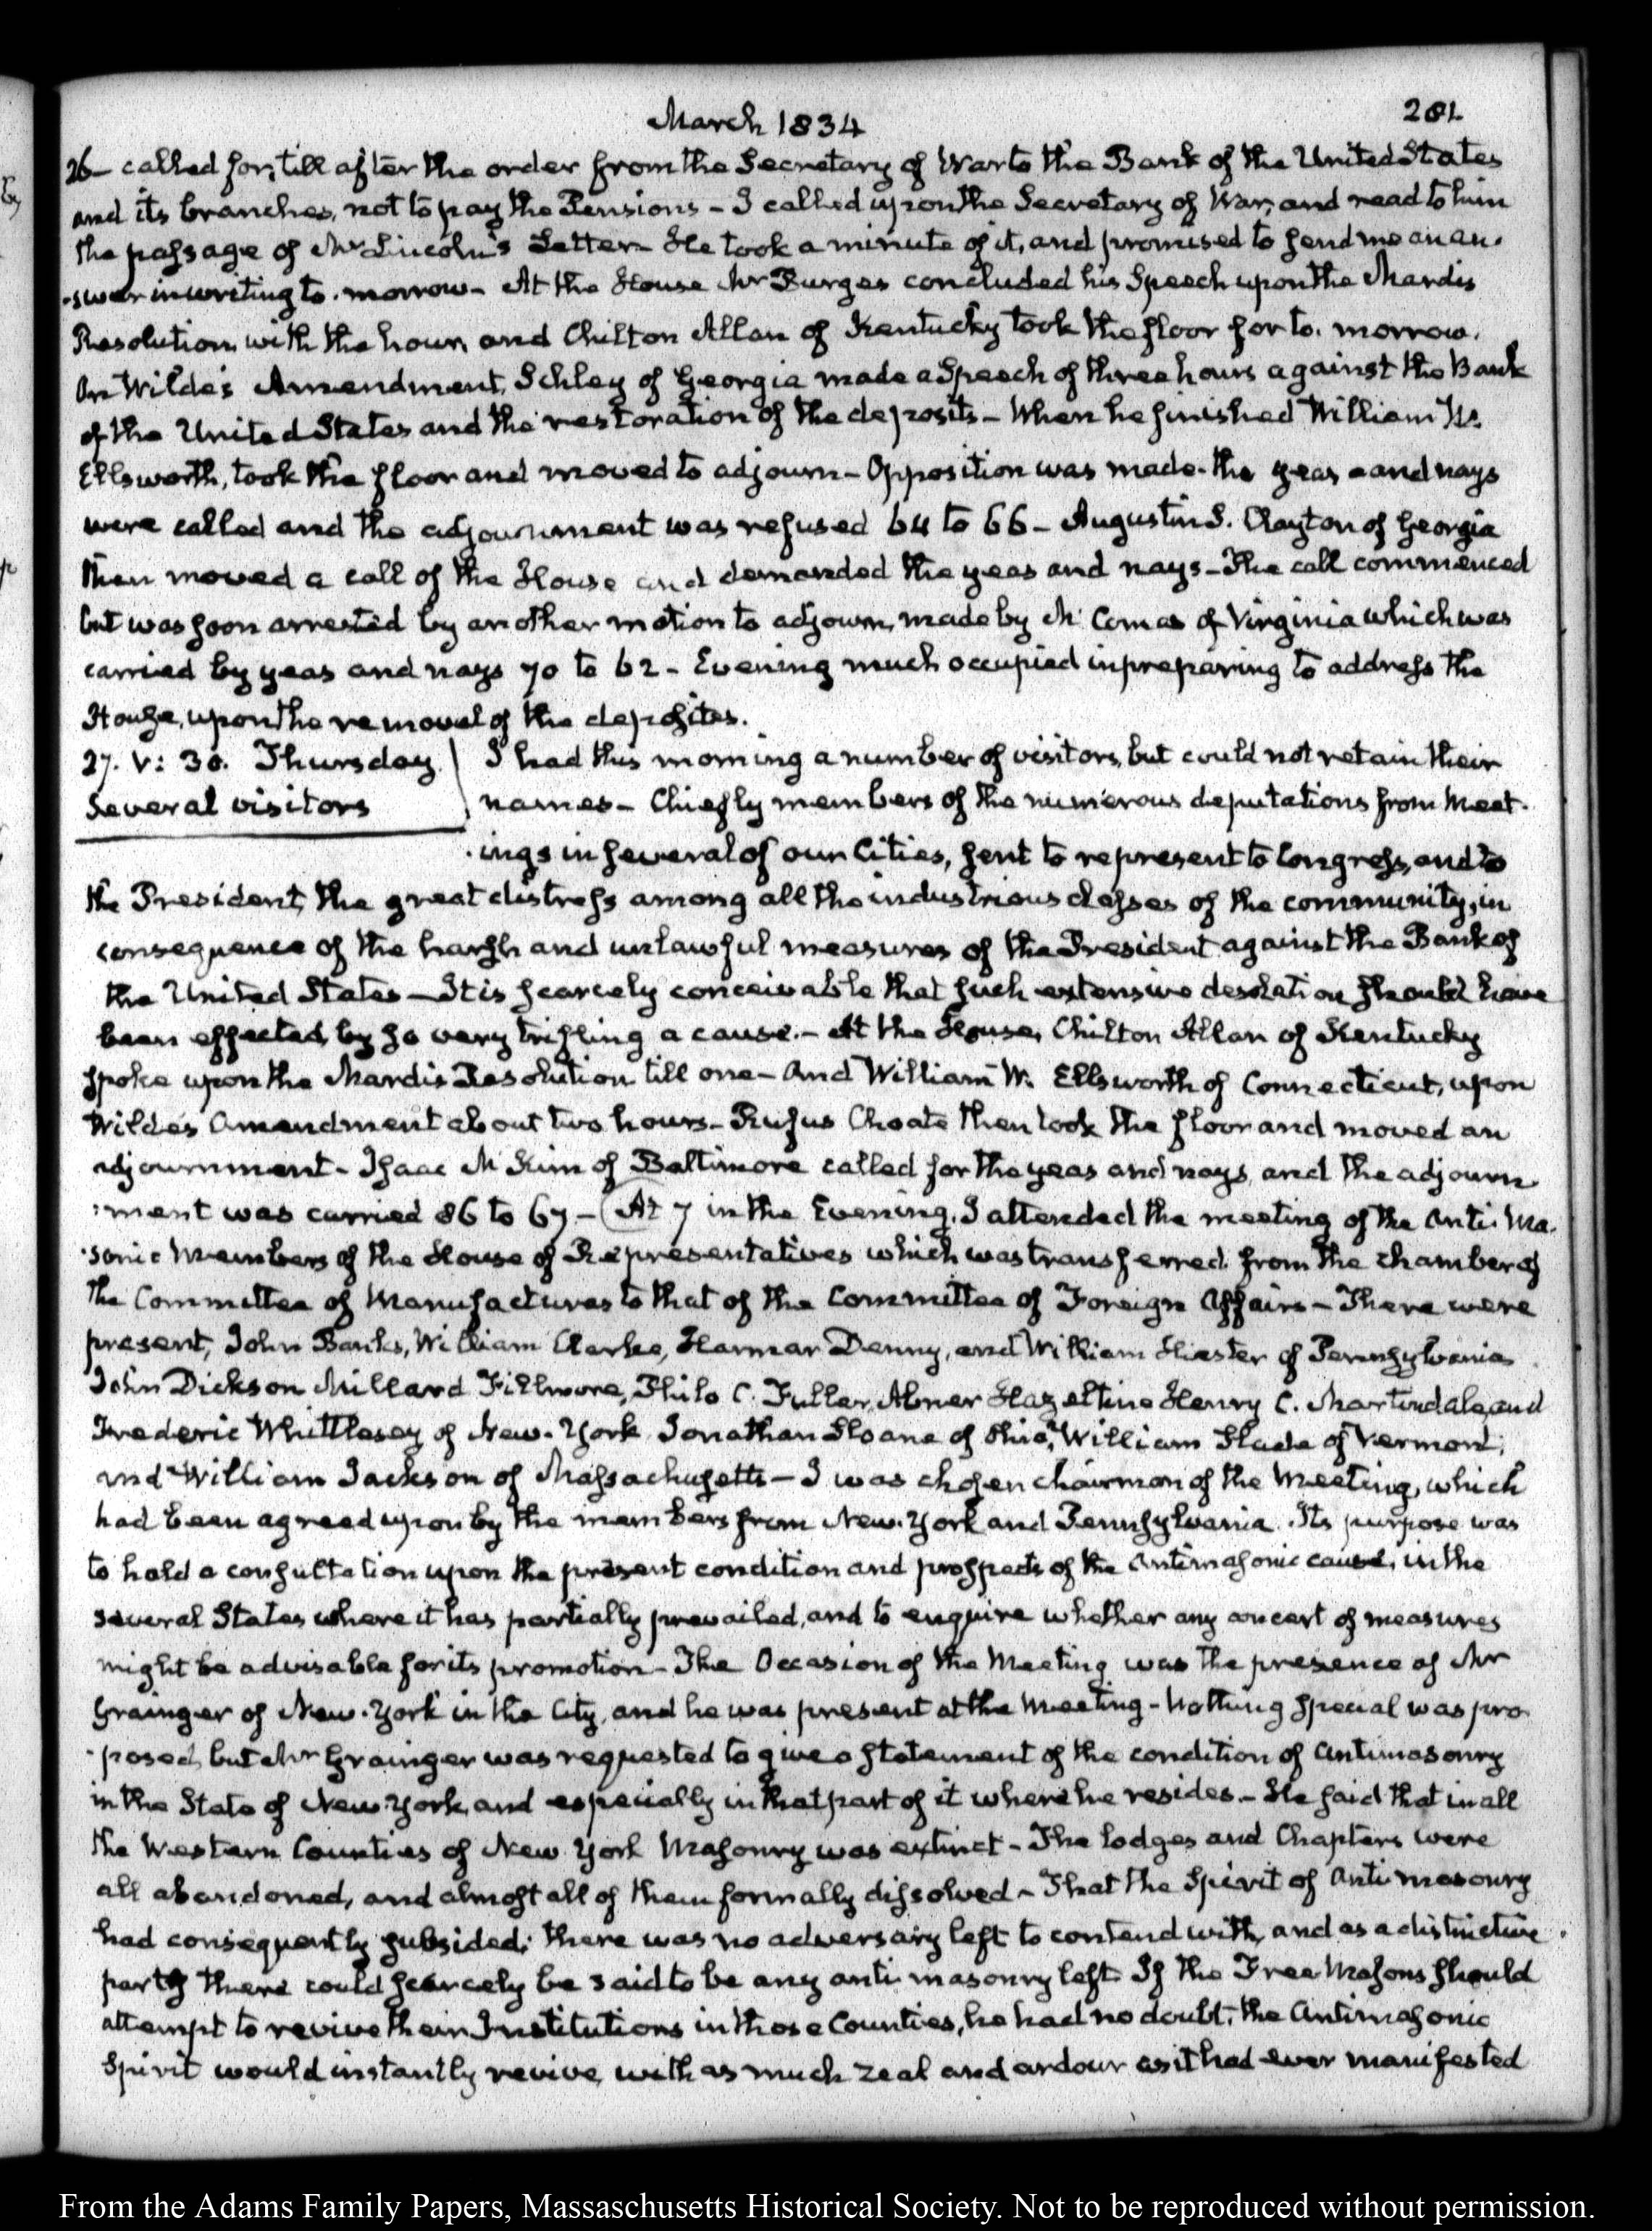 March 1834
281
26— called for, till after the order from the Secretary of War to the Bank of the United States
and its branches, not to pay the Pensions – I called upon the Secretary of War, and read to him
the passage of Mr Lincoln's Letter – He took a minute of it, and promised to send me an an-
-swer in writing to-morrow – At the House Mr Burges concluded his Speech upon the Mardis
Resolution, with the hour, and Chilton Allan of Kentucky took the floor for to-morrow.
On Wilde's Amendment, Schley of Georgia made a Speech of three hours against the Bank
of the United States and the restoration of the deposits – When he finished William W.
Ellsworth, took the floor and moved to adjourn – Opposition was made – the yeas and nays
were called and the adjournment was refused 64 to 66 – Augustin S. Clayton of Georgia
then moved a call of the House and demanded the yeas and nays – The call commenced
but was soon arrested by another motion to adjourn, made by Mc Comas of Virginia which was
carried by yeas and nays 70 to 62 – Evening much occupied in preparing to address the
House, upon the removal of the deposites.
27. V: 30. Thursday.
Several visitors
I had this morning a number of visitors, but could not retain their
names – Chiefly members of the numerous deputations from Meet-
-ings in several of our Cities, sent to represent to Congress, and to
the President, the great distress among all the industrious classes of the community, in
consequence of the harsh and unlawful measures of the President against the Bank of
the United States – It is scarcely conceivable that such extensive desolation should have
been effected, by so very trifling a cause. – At the House, Chilton Allan of Kentucky
spoke upon the Mardis Resolution till one – And William W. Ellsworth of Connecticut, upon
Wilde's Amendment about two hours – Rufus Choate then took the floor and moved an
adjournment – Isaac McKim of Baltimore called for the yeas and nays, and the adjourn-
-ment was carried 86 to 67 – (At 7 in the Evening, I attended the meeting of the Anti-Ma-
-sonic Members of the House of Representatives which was transferred from the chamber of
the Committee of Manufactures to that of the Committee of Foreign Affairs – There were
present, John Banks, William Clarke, Harmar Denny, and William Hiester of Pennsylvania
John Dickson Millard Fillmore, Philo C. Fuller, Abner Hazeltine Henry C. Martindale, and
Frederic Whittlesey of New-York, Jonathan Sloane of Ohio, William Slade of Vermont,
and William Jackson of Massachusetts – I was chosen chairman of the Meeting, which
had been agreed upon by the members from New-York and Pennsylvania. Its purpose was
to hold a consultation upon the present condition and prospects of the Antimasonic cause, in the
several States where it has partially prevailed, and to enquire whether any concert of measures
might be advisable for its promotion – The Occasion of the Meeting was the presence of Mr
Grainger of New-York in the City, and he was present at the Meeting – Nothing special was pro-
-posed, but Mr Grainger was requested to give a statement of the condition of Antimasonry
in the State of New-York, and especially in that part of it where he resides. – He said that in all
the Western Counties of New York Masonry was extinct – The lodges and Chapters were
all abandoned, and almost all of them formally dissolved – That the Spirit of Anti masonry
had consequently subsided; there was no adversary left to contend with, and as a distinctive
party there could scarcely be said to be any anti-masonry left. If the Free Masons should
attempt to revive their Institutions in those Counties, he had no doubt, the Antimasonic
Spirit would instantly revive, with as much zeal and ardour as it had ever manifested
From the Adams Family Papers, Massachusetts Historical Society. Not to be reproduced without permission.